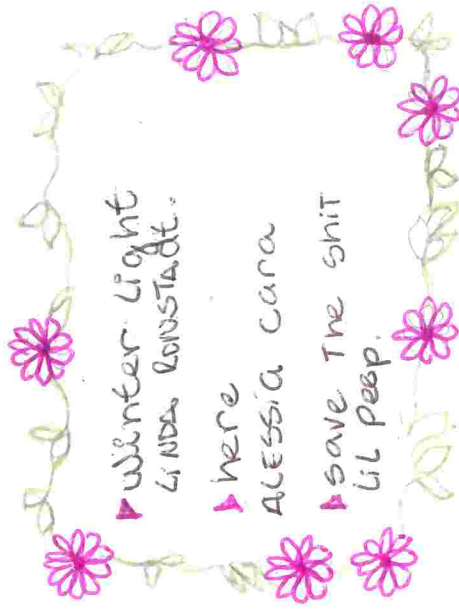 Winter Light
LiNDA RONSTADt.
here
ALESSiA Cara
Save The shiT
LiL Peep.